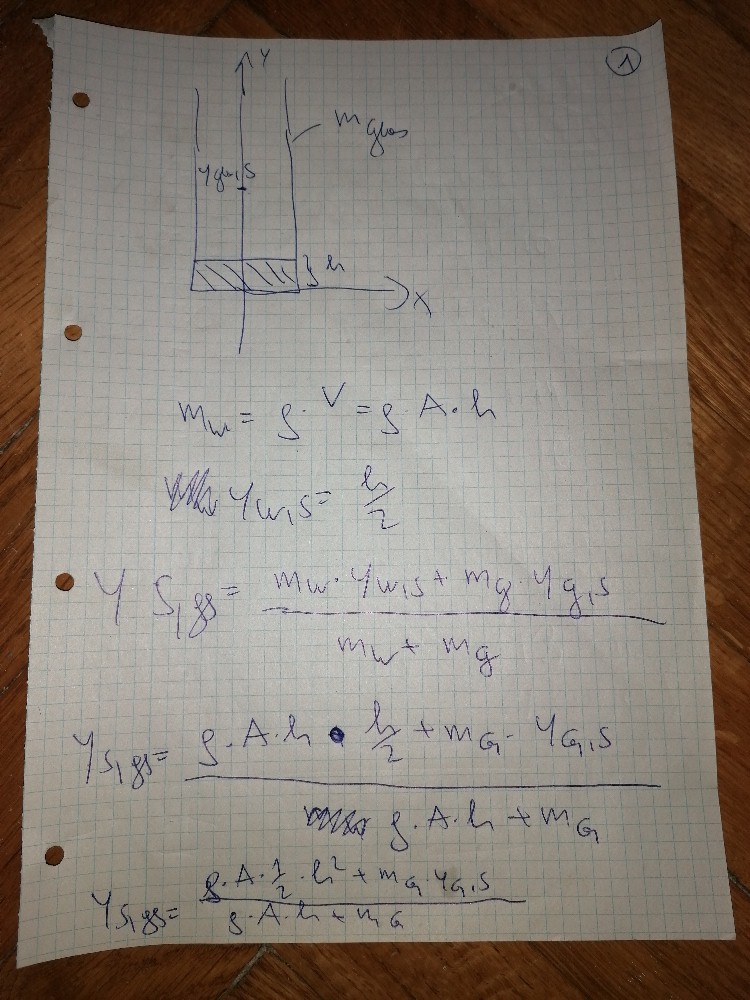 1
Y
m glas
y glas,S
h
X
m_w = ρ · V = ρ · A · h
y_w,S = h/2
y_S,gs = (m_w · y_w,S + m_g · y_g,S) / (m_w + m_g)
y_S,gs = (ρ · A · h · h/2 + m_G · y_G,S) / (ρ · A · h + m_G)
y_S,gs = (ρ · A · 1/2 · h² + m_G · y_G,S) / (ρ · A · h + m_G)